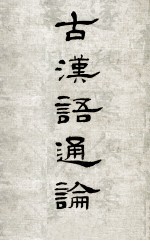 古漢語通論